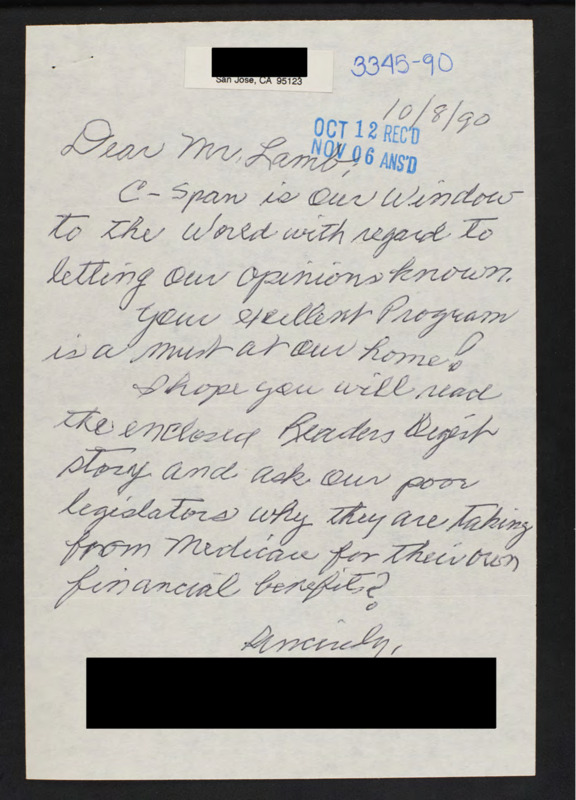 San Jose, CA 95123
3345-90
10/8/90
OCT 12 REC'D
NOV 06 ANS'D
Dear Mr. Lamb,
C-Span is our window
to the world with regard to
letting our opinions known.
Your excellent Program
is a must at our home!
I hope you will read
the enclosed Readers Digest
story and ask our poor
legislators why they are taking
from Medicare for their own
financial benefit?
Sincerely,